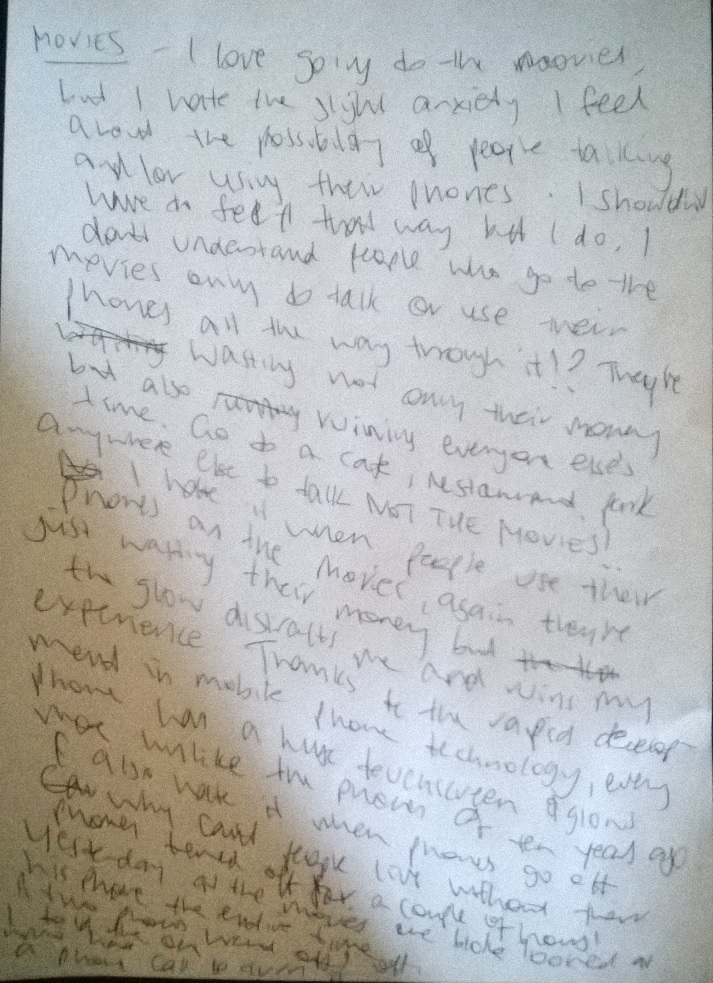 MOVIES - I love going to the moovies,
but I hate the slight anxiety I feel
about the possibility of people talking
and/or using their phones. I shouldn't
have to feel that way but I do. I
don't understand people who go to the
movies only to talk or use their
phones all the way through it!? They're
wasting not only their money
but also ruining everyone else's
time. Go to a cafe, restaurant, park
anywhere else to talk NOT THE MOVIES!
I hate it when people use their
phones at the movies, again they're
just wasting their money but
the glow distracts me and ruins my
experience. Thanks to the rapid develop-
ment in mobile phone technology, every
phone has a huge touchscreen & glows
more unlike the phones of ten years ago
I also hate it when phones go off
Why can't people live without their
phones turned off for a couple of hours!
Yesterday at the movies one bloke looked at
his phone the entire time
& two phones went off!
I told
a phone call